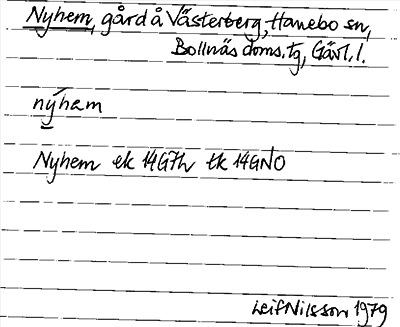 Nyhem, gård å Västerberg, Hanebo sn,
Bollnäs doms. tg, Gävl. l.
nýham
Nyhem ek 14G7h tk 14GNO
Leif Nilsson 1979